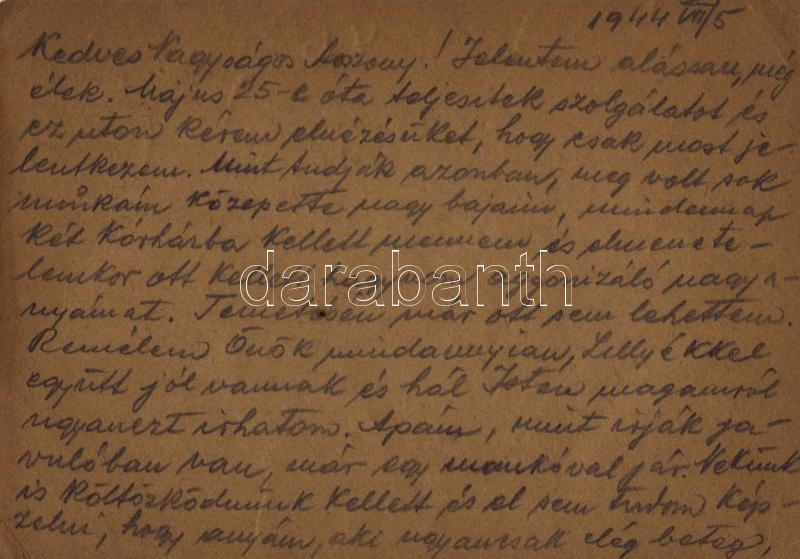 1944 VII/5
Kedves Nagyságos Asszony! Jelentem alássan, még
élek. Május 25-e óta teljesitek szolgálatot és
ez uton kérem elnézésüket, hogy csak most je-
lentkezem. Mint tudják azonban, meg volt sok
munkám közepette nagy bajaim, mindennap
két kórházba kellett mennem és elmenete-
lemkor ott kellett hagynom agonizáló nagya-
nyámat. Temetésén már ott sem lehettem.
Remélem Önök mindannyian, Lillyékkel
együtt jól vannak és hál Isten magamról
ugyanezt irhatom. Apám, mint irják ja-
vulóban van, már egy mankóval jár. Nekünk
is költözködnünk kellett és el sem tudom kép-
zelni, hogy anyám, aki ugyancsak elég beteg
darabanth